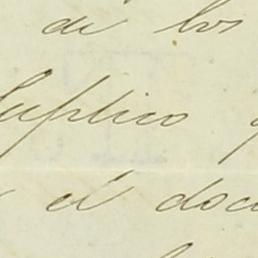 de los
Suplico
el docu